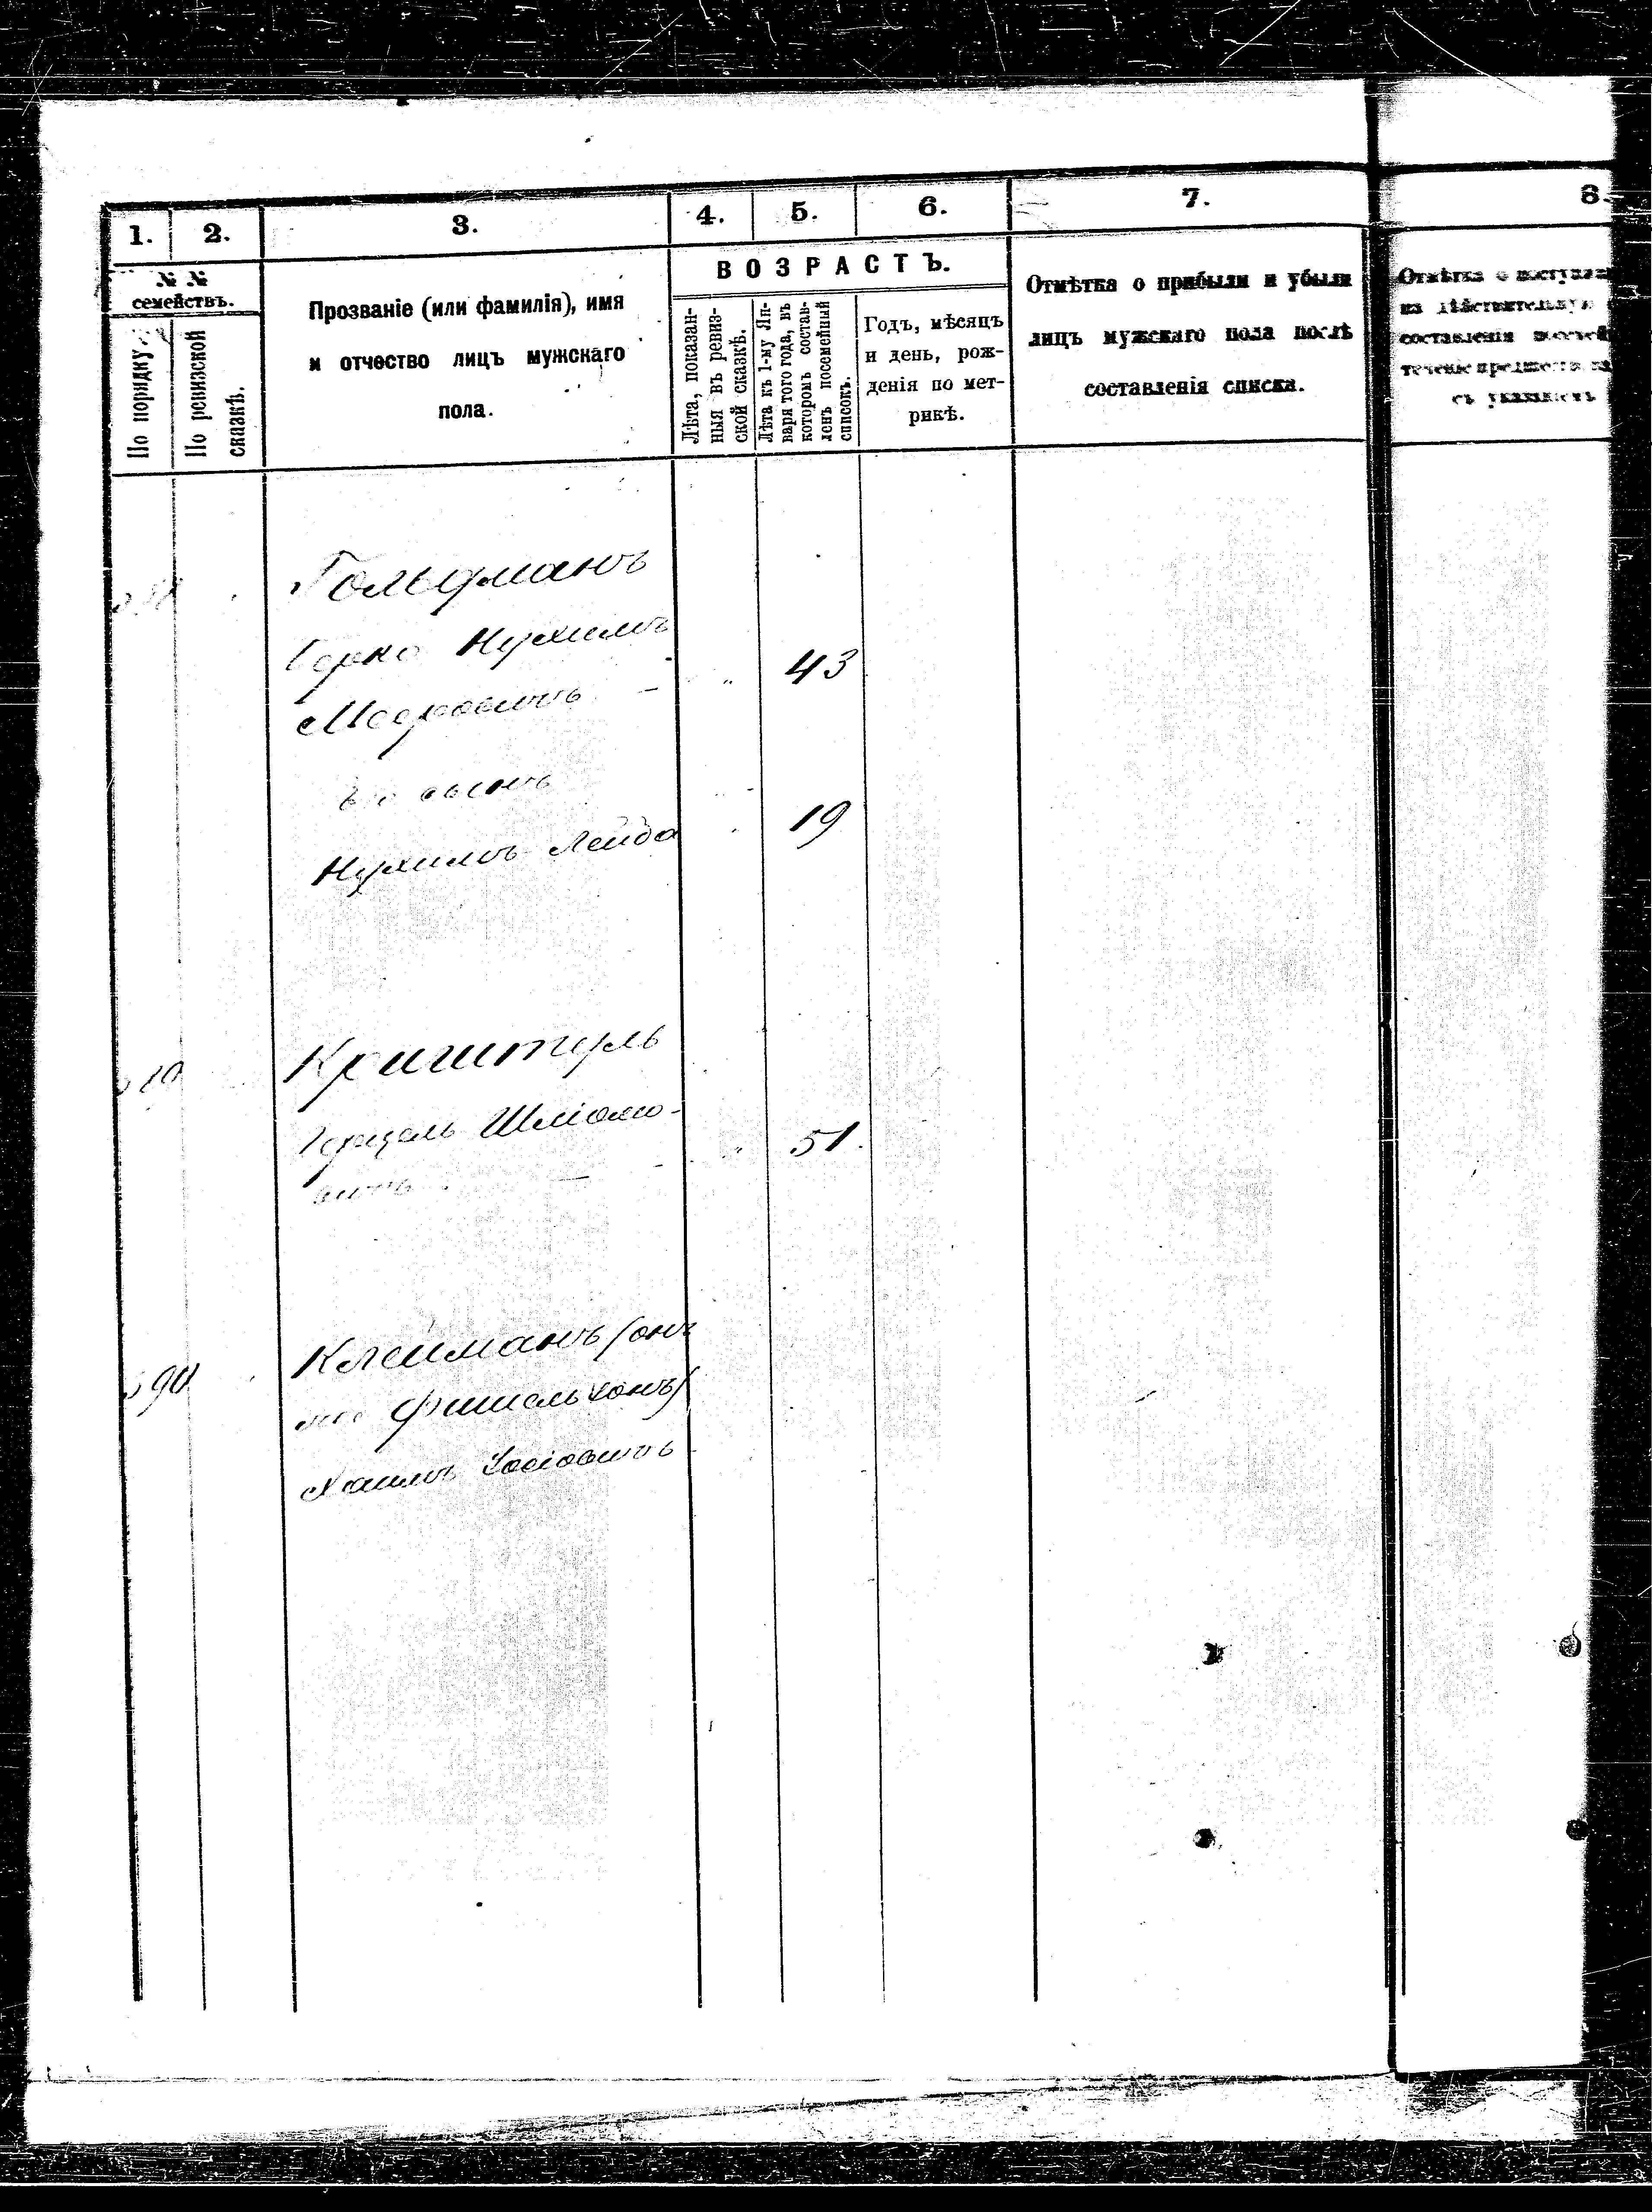 1. 2. 3. 4. 5. 6. 7. 8.
№ №
семействъ.
По порядку
По ревизской
сказкѣ.
Прозваніе (или фамилія), имя
и отчество лицъ мужскаго
пола.
ВОЗРАСТЪ.
Лѣта, показан-
ныя въ ревиз-
ской сказкѣ.
Лѣта къ 1-му Ян-
варя того года, въ
которомъ состав-
ленъ посемейный
списокъ.
Годъ, мѣсяцъ
и день, рож-
денія по мет-
рикѣ.
Отмѣтка о прибыли и убыли
лицъ мужскаго пола послѣ
составленія списка.
Отмѣтка о
на дѣйствительную
составленія
съ
Гольдманъ
Нухимъ
Мееровичъ - " 43
его сынъ
Нухимъ Лейба 19
Криштуль
Герцель Шліомо-
вичъ - " 51.
390
Клейманъ (онъ
же Фишельзонъ)
Хаимъ Іосіовичъ